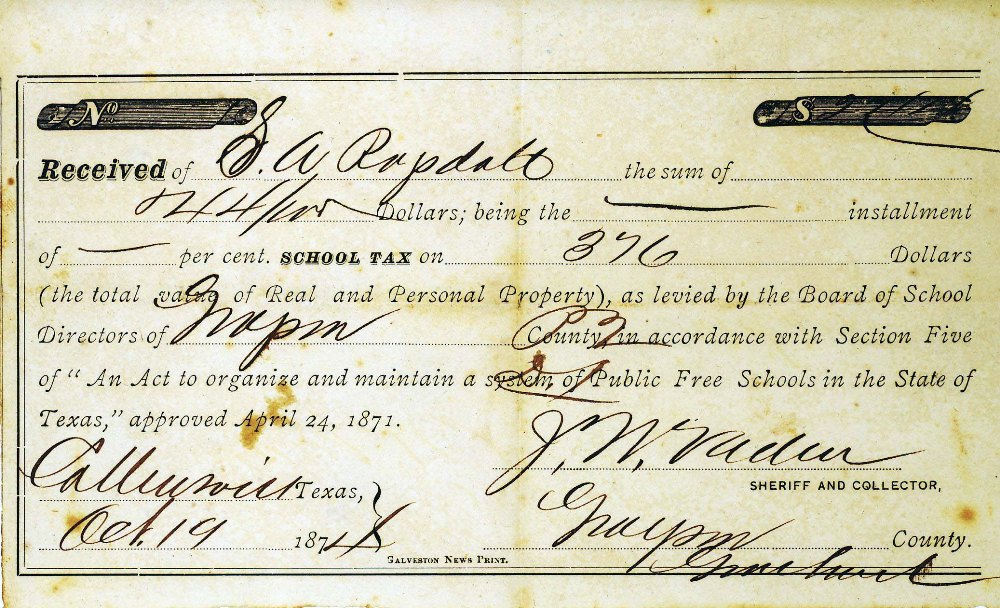 No. $
Received of S. A Ragsdale the sum of
44/100 Dollars; being the — installment
of — per cent. SCHOOL TAX on 376 Dollars
(the total value of Real and Personal Property), as levied by the Board of School
Directors of Grayson County, in accordance with Section Five
of "An Act to organize and maintain a system of Public Free Schools in the State of
Texas," approved April 24, 1871.
J. W. Vaden
SHERIFF AND COLLECTOR,
Texas,
Oct. 19 1874 Grayson County.
GALVESTON NEWS PRINT.